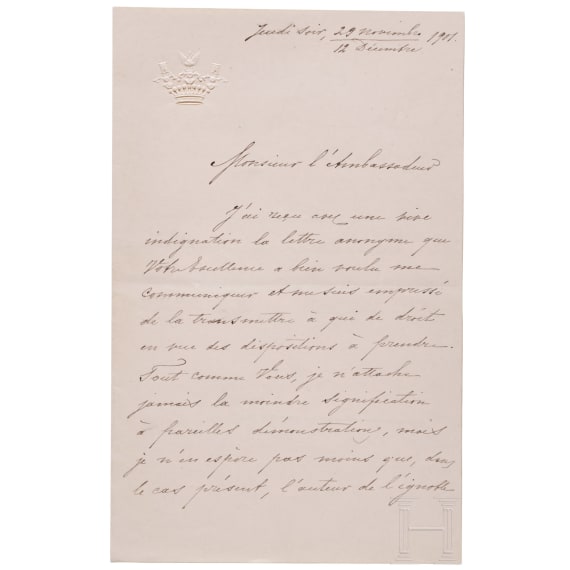 Jeudi soir, 29 novembre 1901.
12 Décembre
Monsieur l'Ambassadeur
J'ai reçu avec une vive
indignation la lettre anonyme que
Votre Excellence a bien voulu me
communiquer et me suis empressé
de la transmettre à qui de droit
en vue des dispositions à prendre.
Tout comme Vous, je n'attache
jamais la moindre signification
à pareilles démonstrations, mais
je n'en espère pas moins que, dans
le cas présent, l'auteur de l'ignoble
H